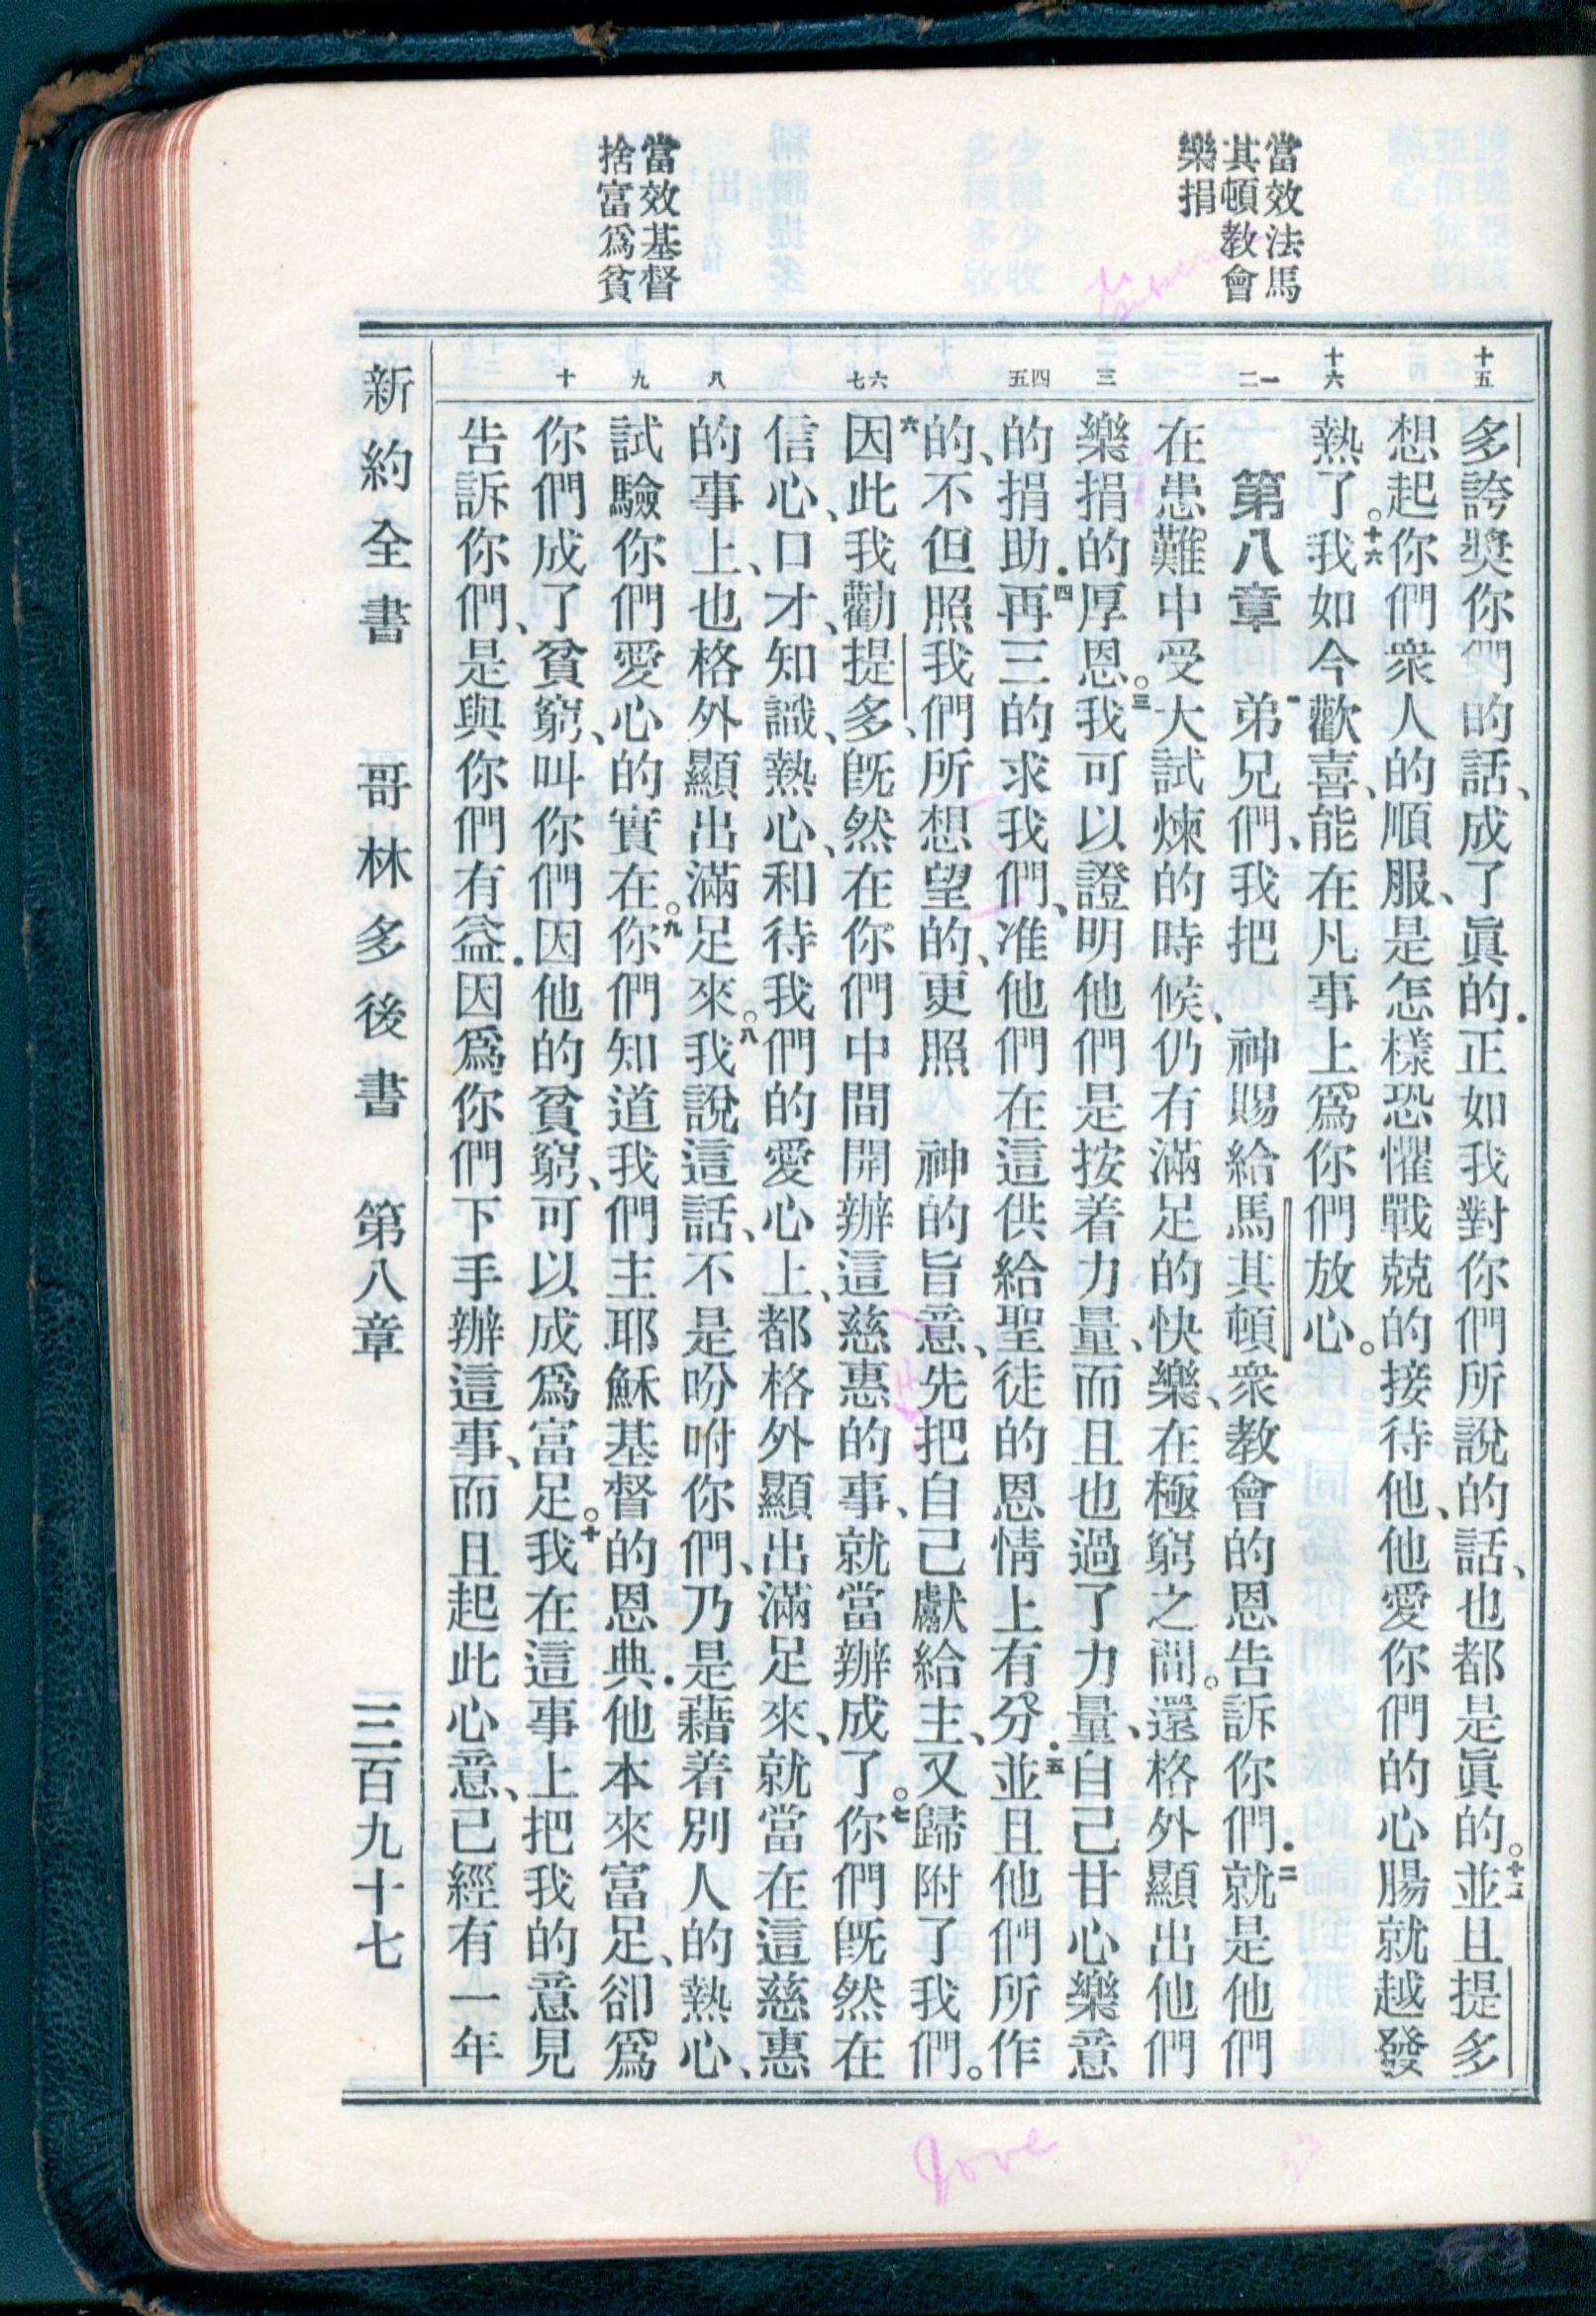 當效法馬
其頓教會
樂捐
當效基督
捨富爲貧
十五
十六
一二
三
四五
六七
八
九
十
多誇奬你們的話、成了眞的．正如我對你們所說的話、也都是眞的。十五並且提多
想起你們衆人的順服、是怎樣恐懼戰兢的接待他、他愛你們的心腸就越發
熱了。十六我如今歡喜、能在凡事上爲你們放心。
第八章 一弟兄們、我把 神賜給馬其頓衆教會的恩告訴你們．二就是他們
在患難中受大試煉的時候、仍有滿足的快樂、在極窮之間。還格外顯出他們
樂捐的厚恩。三我可以證明他們是按着力量、而且也過了力量、自己甘心樂意
的捐助．四再三的求我們、准他們在這供給聖徒的恩情上有分．五並且他們所作
的、不但照我們所想望的、更照 神的旨意、先把自己獻給主、又歸附了我們。
六因此我勸提多、旣然在你們中間開辦這慈惠的事、就當辦成了。七你們旣然在
信心、口才、知識、熱心、和待我們的愛心上、都格外顯出滿足來、就當在這慈惠
的事上、也格外顯出滿足來。八我說這話、不是吩咐你們、乃是藉着別人的熱心、
試驗你們愛心的實在。九你們知道我們主耶穌基督的恩典．他本來富足、卻爲
你們成了貧窮、叫你們因他的貧窮、可以成爲富足。十我在這事上把我的意見
告訴你們、是與你們有益．因爲你們下手辦這事、而且起此心意、已經有一年
新約全書 哥林多後書 第八章 三百九十七
love